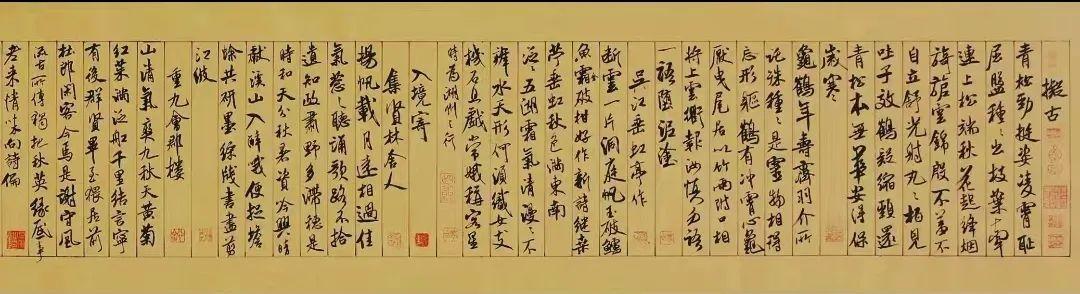 擬古
青松勁挺姿凌霄恥
屈盤種種出枝葉牽
連上松端秋花起絳烟
旖旎雲錦殷不羞不
自立舒光射丸丸柏見
吐子效鶴疑縮頸還
青松本無華安得保
歲寒
龜鶴年壽齊羽介所
託殊種種是靈物相得
忘形軀鶴有冲霄心龜
厭曳尾居以竹兩附口相
將上雲衢報汝慎勿語
一語墮泥塗
吳江垂虹亭作
断雲一片洞庭帆玉破鱸
魚霜金破柑好作新詩繼桑
苧垂虹秋色滿東南
泛泛五湖霜氣清漫漫不
辨水天形何須織女支
機石且戲常娥稱客星
時為湖州之行
入境寄
集賢林舍人
揚帆載月遠相過佳
氣蔥蔥聽誦歌路不拾
遺知政肅野多滯穗是
時和天分秋暑資吟興晴
獻溪山入醉哦便捉蟾
蜍共研墨綵牋書盡剪
江波
重九會郡樓
山清氣爽九秋天黃菊
紅茱滿泛船千里結言寧
有後群賢畢至猥居前
杜郎閑客今焉是謝守風
流古所傳獨把秋英緣底事
老來情味向詩偏